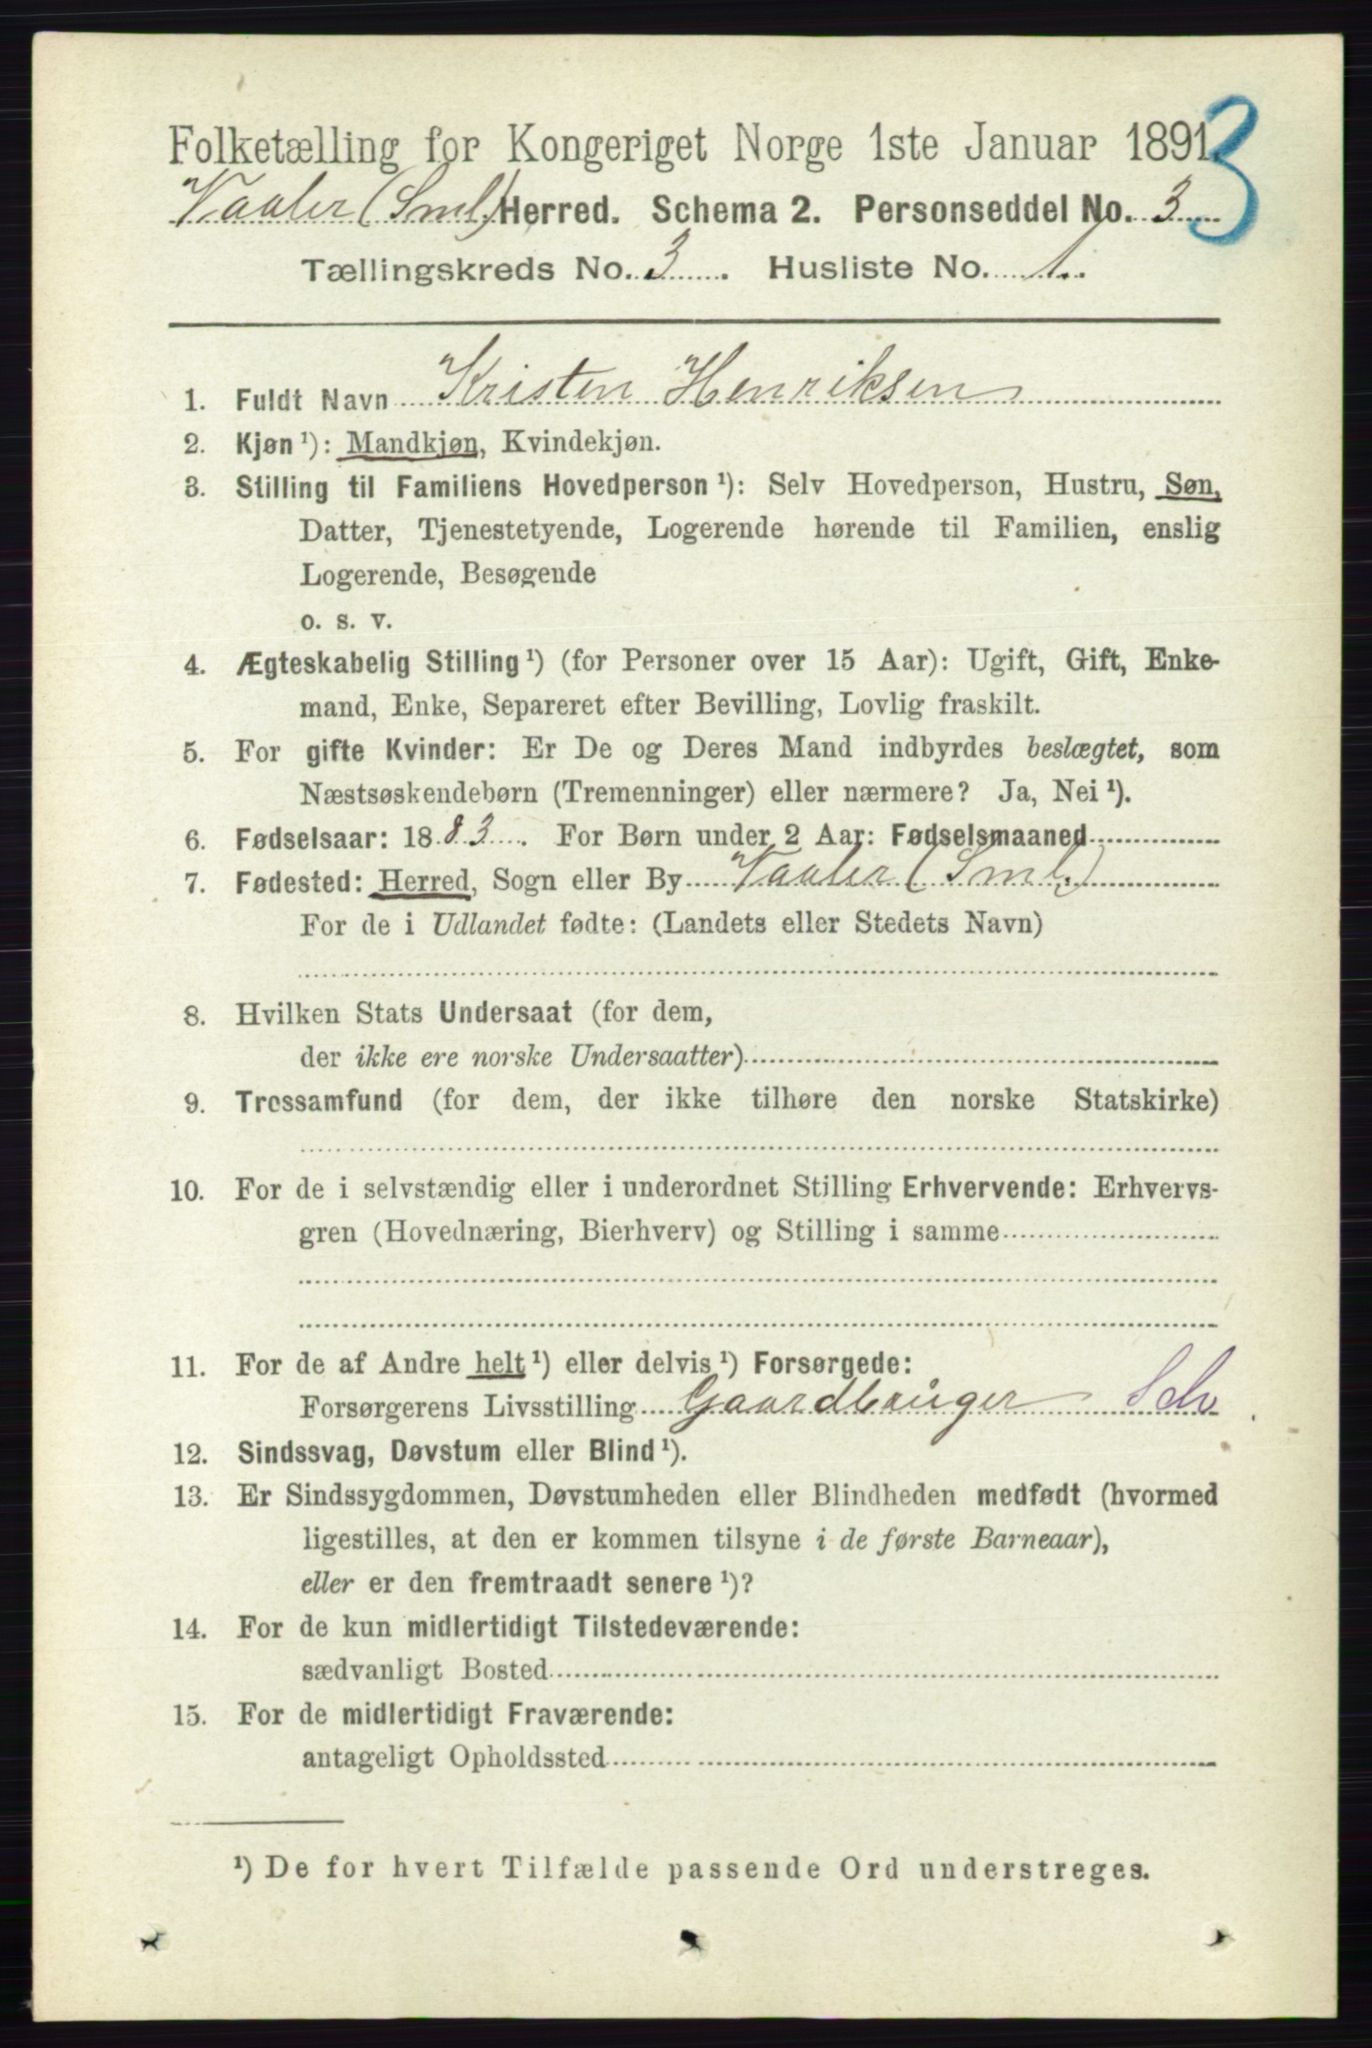 3
Folketælling for Kongeriget Norge 1ste Januar 1891.
Vaaler (Sml.) Herred. Schema 2. Personseddel No. 3
Tællingskreds No. 3. Husliste No. 1.
1. Fuldt Navn Kristen Henriksen
2. Kjøn ¹): Mandkjøn, Kvindekjøn.
3. Stilling til Familiens Hovedperson ¹): Selv Hovedperson, Hustru, Søn,
Datter, Tjenestetyende, Logerende hørende til Familien, enslig
Logerende, Besøgende
o. s. v.
4. Ægteskabelig Stilling ¹) (for Personer over 15 Aar): Ugift, Gift, Enke-
mand, Enke, Separeret efter Bevilling, Lovlig fraskilt.
5. For gifte Kvinder: Er De og Deres Mand indbyrdes beslægtet, som
Næstsøskendebørn (Tremenninger) eller nærmere? Ja, Nei ¹).
6. Fødselsaar: 1883. For Børn under 2 Aar: Fødselsmaaned
7. Fødested: Herred, Sogn eller By Vaaler (Sml.)
For de i Udlandet fødte: (Landets eller Stedets Navn)
8. Hvilken Stats Undersaat (for dem,
der ikke ere norske Undersaatter)
9. Trossamfund (for dem, der ikke tilhøre den norske Statskirke)
10. For de i selvstændig eller i underordnet Stilling Erhvervende: Erhvervs-
gren (Hovednæring, Bierhverv) og Stilling i samme
11. For de af Andre helt ¹) eller delvis ¹) Forsørgede:
Forsørgerens Livsstilling Gaardbruger Selv
12. Sindssvag, Døvstum eller Blind ¹).
13. Er Sindssygdommen, Døvstumheden eller Blindheden medfødt (hvormed
ligestilles, at den er kommen tilsyne i de første Barneaar),
eller er den fremtraadt senere ¹)?
14. For de kun midlertidigt Tilstedeværende:
sædvanligt Bosted
15. For de midlertidigt Fraværende:
antageligt Opholdssted
¹) De for hvert Tilfælde passende Ord understreges.